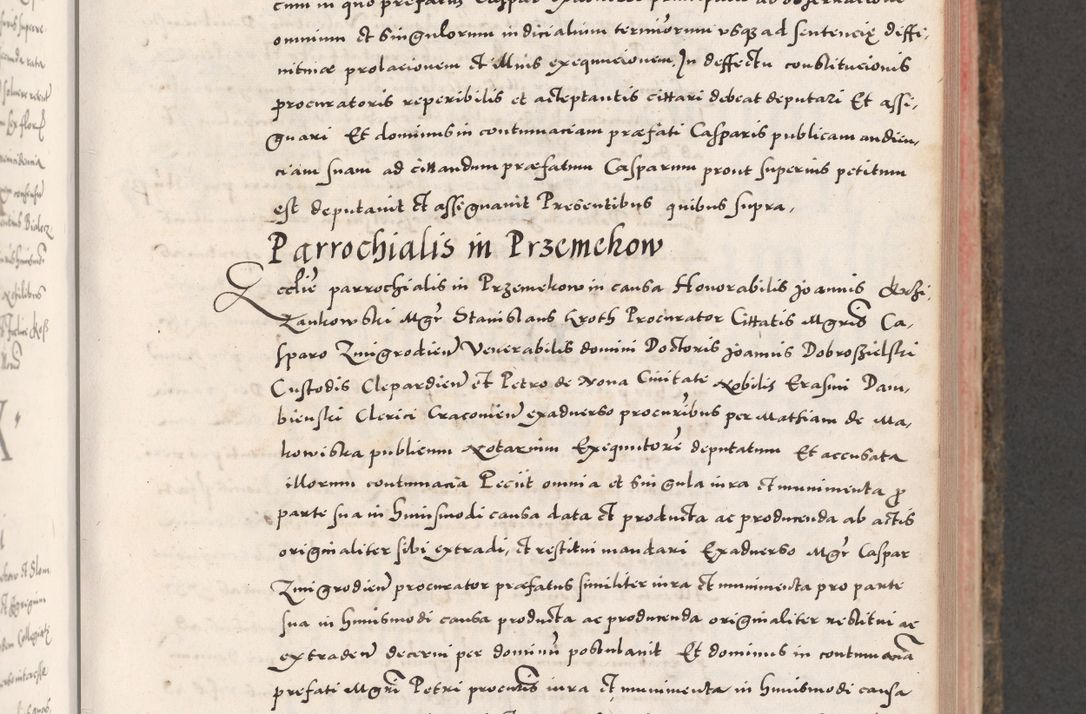 cum in quo prefatus Caspar
omnium et singulorum iudicialium terminorum usque ad sentencię diffi-
nitivae prolacionem et illius exequucionem. In deffectu constitucionis
procuratoris reperibilis et acceptantis cittari debeat deputari Et assi-
gnari Et dominus in contumaciam præfati Casparis publicam audien-
ciam suam ad cittandum præfatum Casparum prout superius petitum
est deputavit et assignavit Presentibus quibus supra.
Parrochialis in Przemekow
Ecclie parrochialis in Przemekow in causa Honorabilis Joannis
Zankowski Mgr Stanislaus Kroth Procurator Cittatis Mgris Ca-
sparo Zmigrodien Venerabilis domini Doctoris Joannis Dobroszielski
Custodis Clepardien et Petro de Nona Civitate Nobilis Erasmi Dam-
bienski Clerici Cracovien exadverso procuribus per Mathiam de Ma-
kowiska publicum Notarium Exequutore deputatum Et accusata
illorum contumacia Peciit omnia et singula iura et munimenta pro
parte sua in huiusmodi causa data et producta ac producenda ab actis
originaliter sibi extradi, et restitui mandari Exadverso Mgr Caspar
Zmigrodien procurator præfatus similiter iura et munimenta pro parte
sua in huiusmodi causa producta ac producenda originaliter restitui ac
extraden decerni per dominum postulavit Et dominus in contumacia
prefati Mgri Petri procuris iura et munimenta in huiusmodi causa